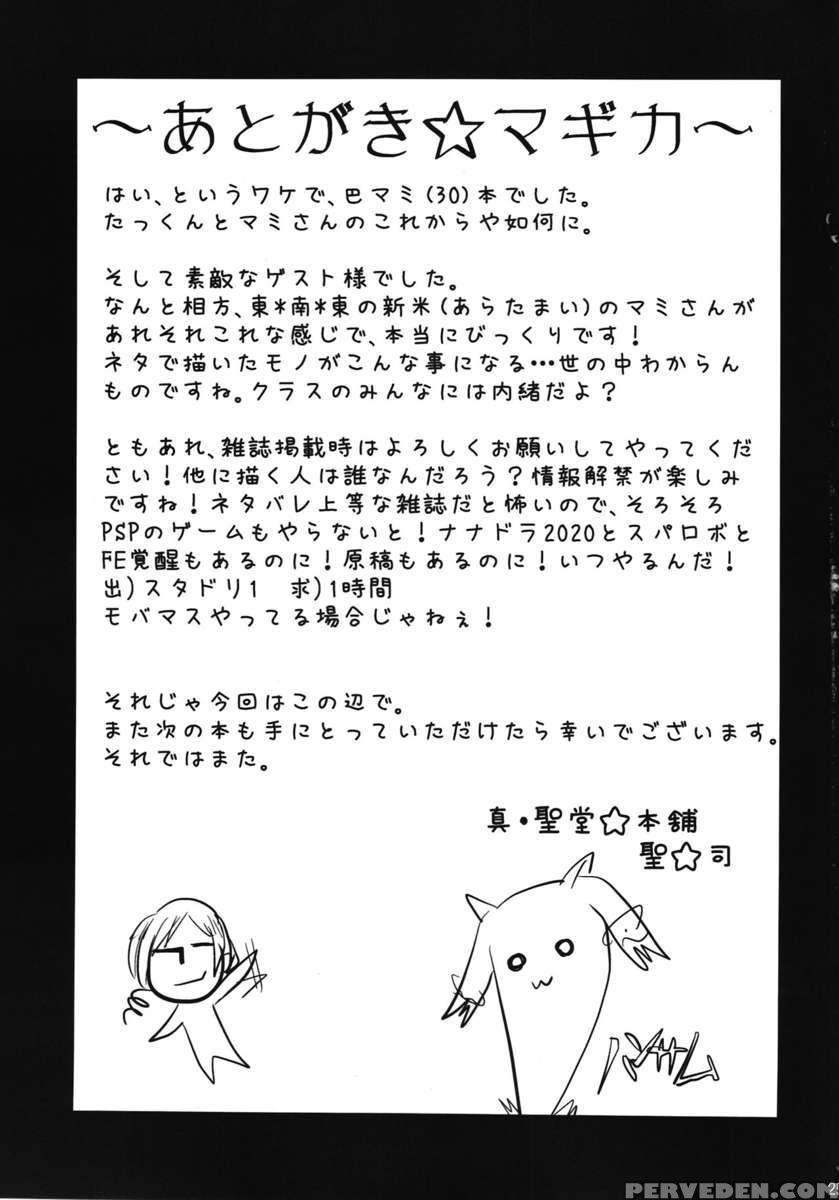 ～あとがき☆マギカ～
はい、というワケで、巴マミ(30)本でした。
たっくんとマミさんのこれからや如何に。
そして素敵なゲスト様でした。
なんと相方、東*南*東の新米(あらたまい)のマミさんが
あれそれこれな感じで、本当にびっくりです！
ネタで描いたモノがこんな事になる…世の中わからん
ものですね。クラスのみんなには内緒だよ？
ともあれ、雑誌掲載時はよろしくお願いしてやってくだ
さい！他に描く人は誰なんだろう？情報解禁が楽しみ
ですね！ネタバレ上等な雑誌だと怖いので、そろそろ
PSPのゲームもやらないと！ナナドラ2020とスパロボと
FE覚醒もあるのに！原稿もあるのに！いつやるんだ！
出)スタドリ1　求)1時間
モバマスやってる場合じゃねぇ！
それじゃ今回はこの辺で。
また次の本も手にとっていただけたら幸いでございます。
それではまた。
真・聖堂☆本舗
聖☆司
ハンサム
PERVEDEN.COM